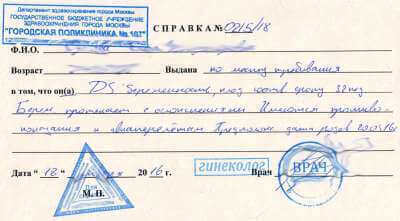 Департамент здравоохранения города Москвы
ГОСУДАРСТВЕННОЕ БЮДЖЕТНОЕ УЧРЕЖДЕНИЕ
ЗДРАВООХРАНЕНИЯ ГОРОДА МОСКВЫ
"ГОРОДСКАЯ ПОЛИКЛИНИКА № 187"
СПРАВКА № 0215/18
Ф.И.О.
Возраст Выдана по месту пребывания
в том, что он(а) DS: беременность, плод соотв. сроку 32 нед
Берем протекает с осложнениями Имеются противо-
показания к авиаперелётам Предполож дата родов 20.05.16г
гинеколог
Дата " 12 " 2016 г. Врач
ВРАЧ
Для
М. П.